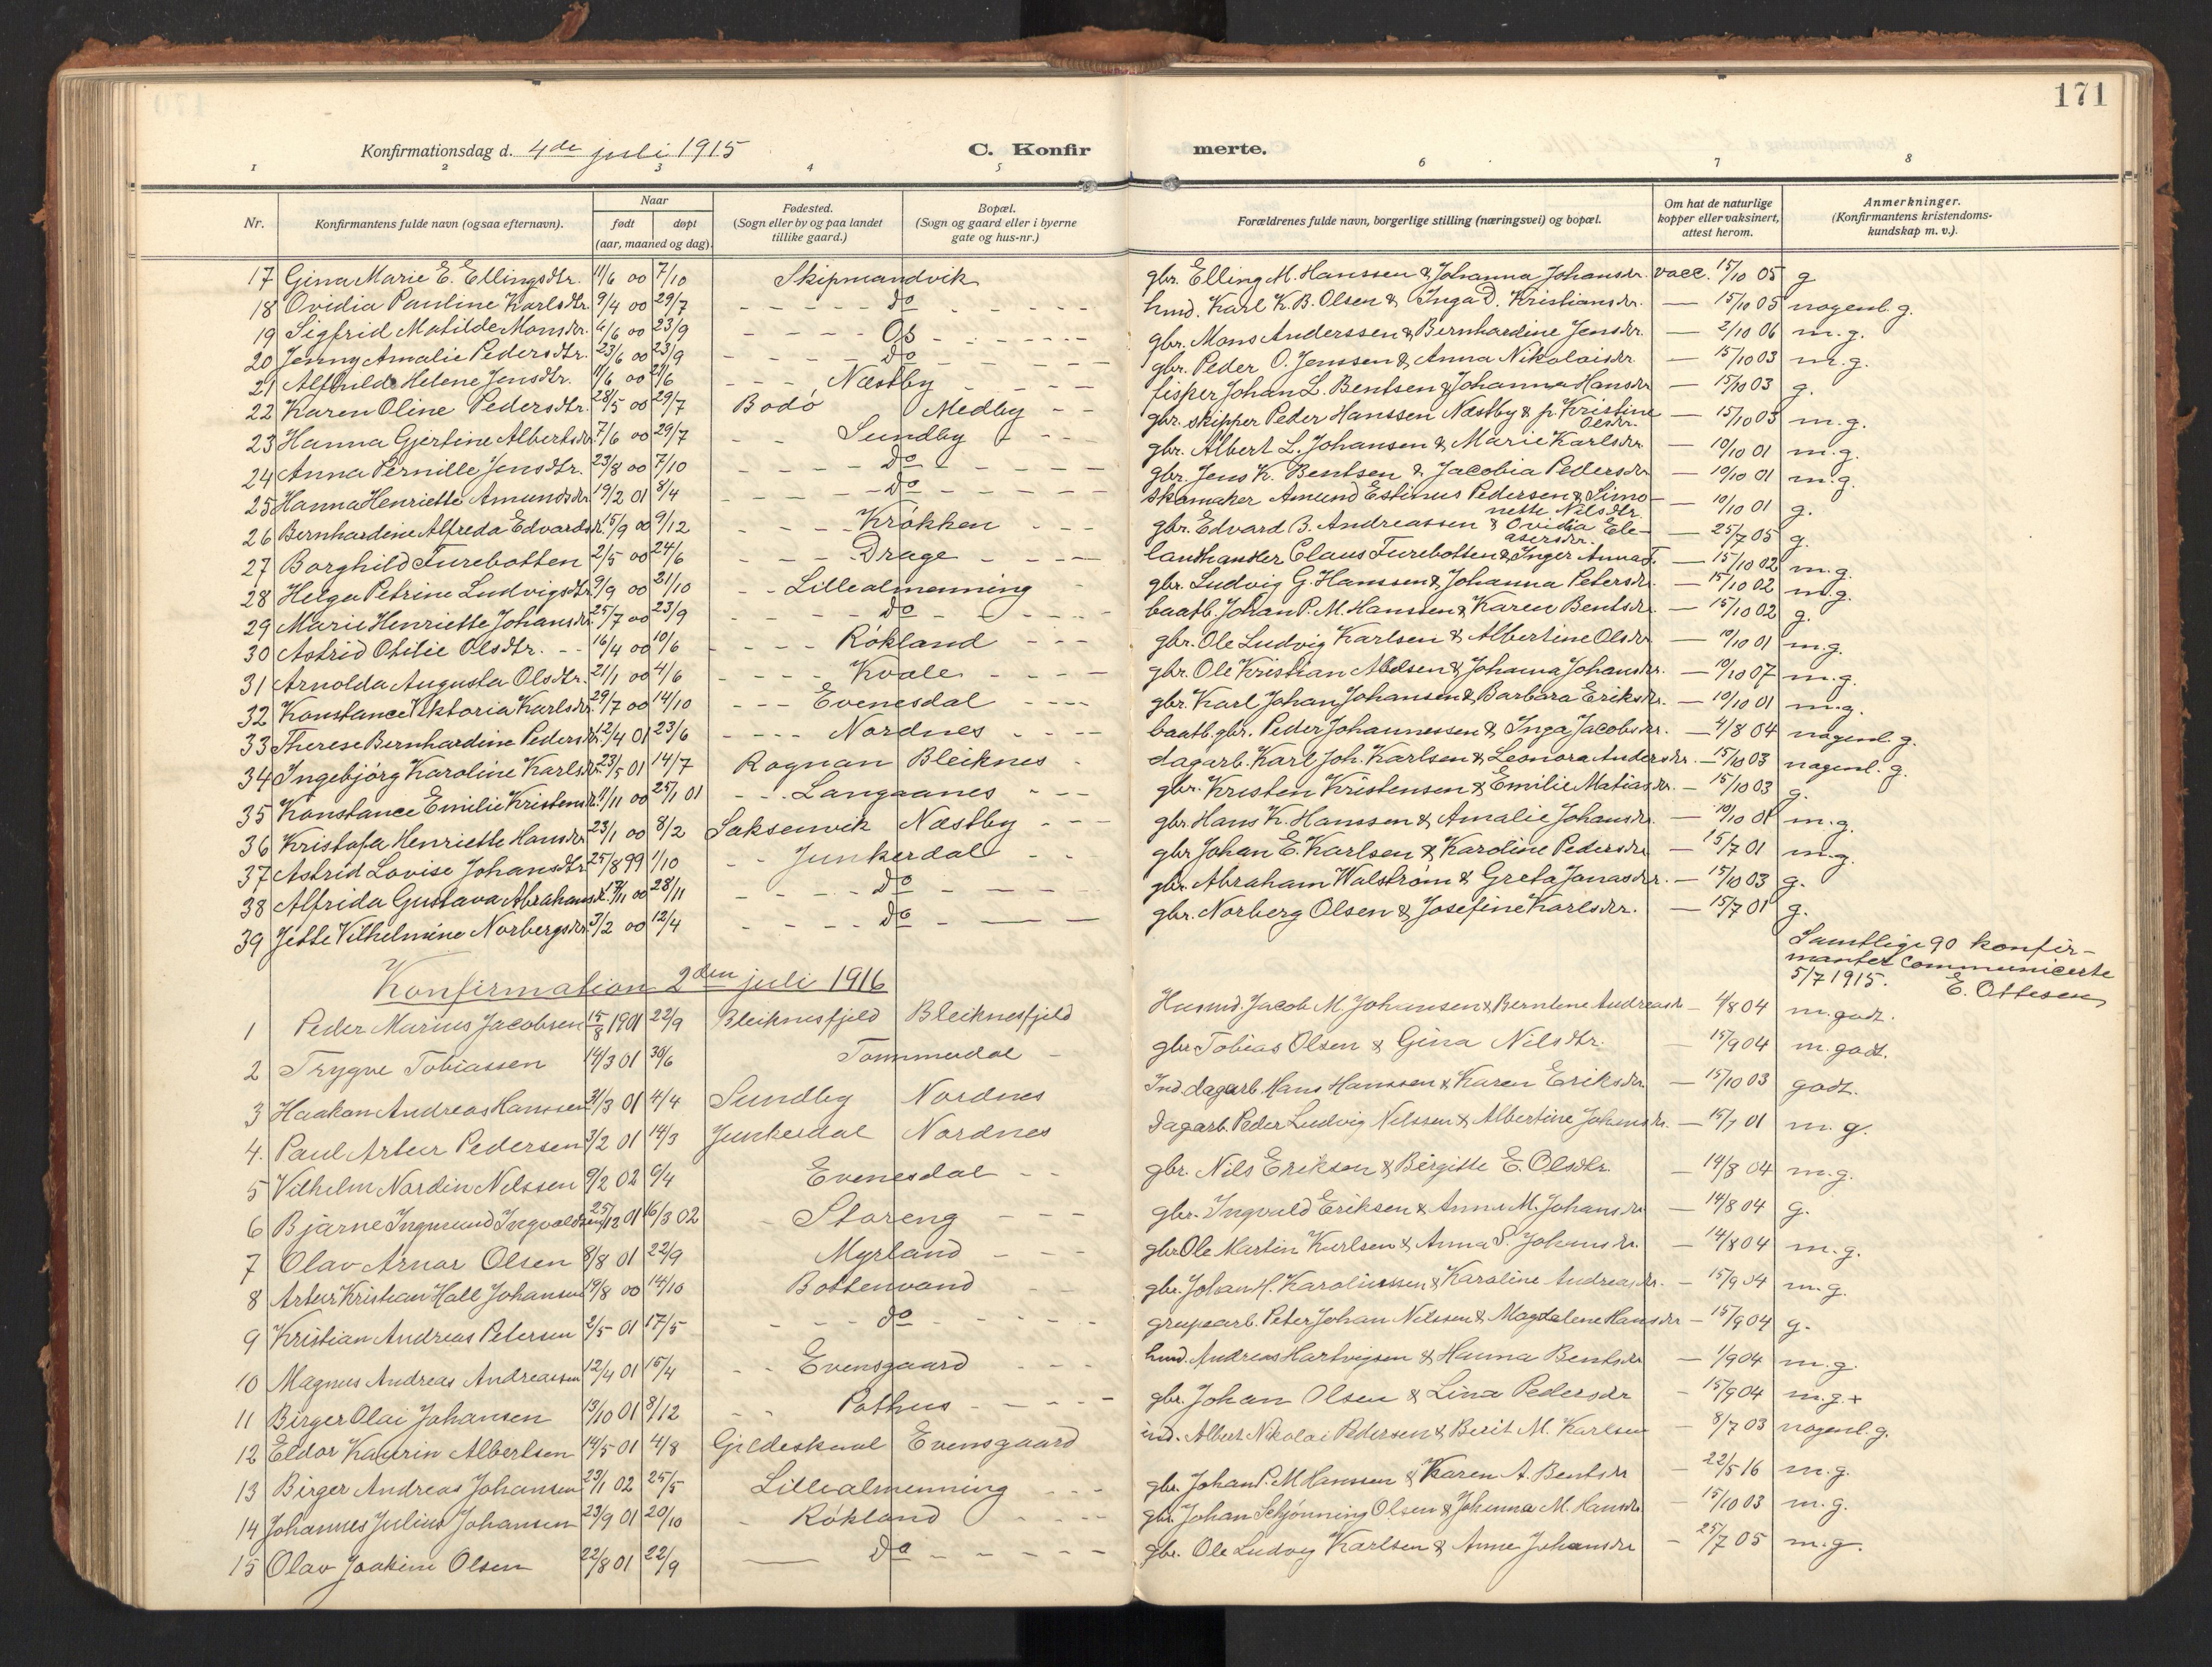 171
Konfirmationsdag d. 4de juli 1915 C. Konfirmerte.
1 2 3 4 5 6 7 8
Nr. Konfirmantens fulde navn (ogsaa efternavn). Naar født døpt (aar, maaned og dag). Fødested. (Sogn eller by og paa landet tillike gaard.) Bopæl. (Sogn og gaard eller i byerne gate og hus-nr.) Forældrenes fulde navn, borgerlige stilling (næringsvei) og bopæl. Om hat de naturlige kopper eller vaksinert, attest herom. Anmerkninger. (Konfirmantens kristendomskundskap m. v.).
17 Gina Marie E. Ellingsdtr. 11/6 00 7/10 Skipmandvik gbr. Elling M. Hanssen & Johanna Johansdr. vacc. 15/10 05 g
18 Ovidia Pauline Karlsdtr. 9/4 00 29/7 do hmd. Karl K. B. Olsen & Inga D. Kristiansdr. — 15/10 05 nogenl. g.
19 Sigfrid Matilde Monsdr. 6/6 00 23/9 Os gbr. Mons Anderssen & Bernhardine Jensdr. — 2/10 06 m. g.
20 Jenny Amalie Pedersdtr. 23/6 00 23/9 do gbr. Peder O. Jenssen & Anna Nikolaisdr. — 15/10 03 m. g.
21 Alfhilde Helene Jensdtr. 11/6 00 2/6 Næstby fisker Johan L. Bentsen & Johanna Hansdr — 15/10 03 g.
22 Karen Oline Pedersdtr. 28/5 00 29/7 Bodö Medby gbr. skipper Peder Hanssen Næstby & p. Kristine Olsdr. — 15/10 03 m. g.
23 Hanna Gjertine Albertsdr. 7/6 00 29/7 Sundby gbr. Albert L. Johansen & Marie Karlsdr — 10/10 01 m. g.
24 Anna Pernille Jensdtr. 23/8 00 7/10 do gbr. Jens K. Bentsen & Jacobia Pedersdr — 10/10 01 m. g.
25 Hanna Henriette Amundsdr. 19/2 01 8/4 do skomaker Amund Estinus Pedersen & Simonette Nilsdtr. — 10/10 01 g.
26 Bernhardine Alfreda Edvardsdr. 15/9 00 9/12 Krökken gbr. Edvard B. Andreassen & Ovidia Eleasersdr. — 25/7 05 g.
27 Borghild Furebotten 2/5 00 24/6 Drage landhandler Claus Furebotten & Inger Anna F. — 15/10 02 m. g.
28 Helga Petrine Ludvigsdtr. 9/9 00 21/10 Lillealmenning gbr. Ludvig G. Hanssen & Johanna Petersdr. — 15/10 02 m. g.
29 Marie Henriette Johansdr. 25/7 00 23/9 do baatb. Johan P. M. Hanssen & Karen Bentsdr. — 15/10 02 g.
30 Astrid Otilie Olsdtr. 16/4 00 10/6 Rökland gbr. Ole Ludvig Karlsen & Albertine Olsdr — 10/10 01 m. g.
31 Arnolda Augusta Olsdtr. 21/1 00 4/6 Kvale gbr. Ole Kristian Abelsen & Johanna Johansdr. — 10/10 07 m. g.
32 Konstance Viktoria Karlsdr. 29/7 00 14/10 Evenesdal gbr. Karl Johan Johansen & Barbara Eriksdr. — 10/10 01 m. g.
33 Therese Bernhardine Pedersdtr. 12/4 01 23/6 Nordnes baatb. gbr. Peder Johannessen & Inga Jacobsdr. — 4/8 04 nogenl. g.
34 Ingebjörg Karoline Karlsdr. 23/5 01 14/7 Rognan Bleiknes dagarb. Karl Joh. Karlsen & Leonora Andersdr. — 15/10 03 nogenl. g.
35 Konstance Emilie Kristensdr. 11/11 00 25/1 01 Langaanes gbr. Kristen Kristensen & Emilie Matiasdr. — 15/10 03 g.
36 Kristofa Henriette Hansdr 23/1 00 8/2 Saksenvik Næstby gbr. Hans K. Hanssen & Amalie Johansdr. — 10/10 01 m. g.
37 Astrid Lovise Johansdtr 25/8 99 1/10 Junkerdal gbr Johan E. Karlsen & Karoline Pedersdr — 15/7 01 m. g.
38 Alfrida Gustava Abrahamsdr. /11 00 28/11 do gbr. Abraham Walström & Greta Jonasdr. — 15/10 03 g.
39 Jette Vilhelmine Norbergsdr 3/2 00 12/4 do gbr. Norberg Olsen & Josefine Karlsdr. — 15/7 01 g.
Samtlige 90 konfirmanter communicerte 5/7 1915. E. Ottesen
Konfirmation 2den juli 1916
1 Peder Marius Jacobsen 15/8 1901 22/9 Bleiknesfjeld Bleiknesfjeld Husmd. Jacob M Johansen & Berntine Andreasdr — 4/8 04 m. godt.
2 Trygve Tobiassen 14/3 01 30/6 Tommerdal gbr Tobias Olsen & Gina Nilsdtr. — 15/9 04 m. godt.
3 Haakon Andreas Hanssen 31/3 01 4/4 Sundby Nordnes Ind. dagarb. Hans Hanssen & Karen Eriksdr — 15/10 03 godt.
4. Paul Artur Pedersen 3/2 01 14/3 Junkerdal Nordnes Dagarb. Peder Ludvig Nilssen & Albertine Johansdr. — 15/7 01 m. g.
5 Vilhelm Nordin Nilssen 9/2 02 9/4 Evenesdal gbr. Nils Eriksen & Birgitte E. Olsdtr. — 14/8 04 m. g.
6 Bjarne Ingmund Ingvaldsen 25/12 01 16/3 02 Storeng gbr. Ingvald Eriksen & Anne M. Johansdr — 14/8 04 g.
7 Olav Arnar Olsen 8/8 01 22/9 Myrland gbr Ole Martin Karlsen & Anna S. Johansdr. — 14/8 04 m. g.
8 Artur Kristian Hall Johansen 19/8 00 14/10 Bottenvand gbr. Johan H. Karoliussen & Karoline Andreasdr. — 15/9 04 m. g.
9 Kristian Andreas Petersen 2/5 01 17/5 do grupearb. Peter Johan Nilssen & Magdalene Hansdr — 15/9 04 g.
10 Magnus Andreas Andreassen 12/4 01 15/4 Evensgaard hmd. Andreas Hartvigsen & Hanna Bentsdr — 1/9 04 m. g.
11 Birger Olai Johansen 13/10 01 8/12 Pothus gbr. Johan Olsen & Lina Pedersdr — 15/9 04 m. g. +
12 Eldor Kaurin Albertsen 14/5 01 4/8 Gildeskaal Evensgaard ind. Albert Nikolai Pedersen & Berit M. Karlsen — 8/7 03 nogenl. g.
13 Birger Andreas Johansen 23/1 02 25/5 Lillealmenning gbr. Johan P. M Hanssen & Karen A. Bentsdr — 22/5 16 m. g.
14 Johannes Julius Johansen 23/9 01 20/10 Rökland gbr. Johan Schjönning Olsen & Johanna M. Hansdr. — 15/10 03 m. g.
15 Olav Joakim Olsen 22/8 01 22/9 do gbr. Ole Ludvig Karlsen & Anne Johansdr — 25/7 05 m. g.